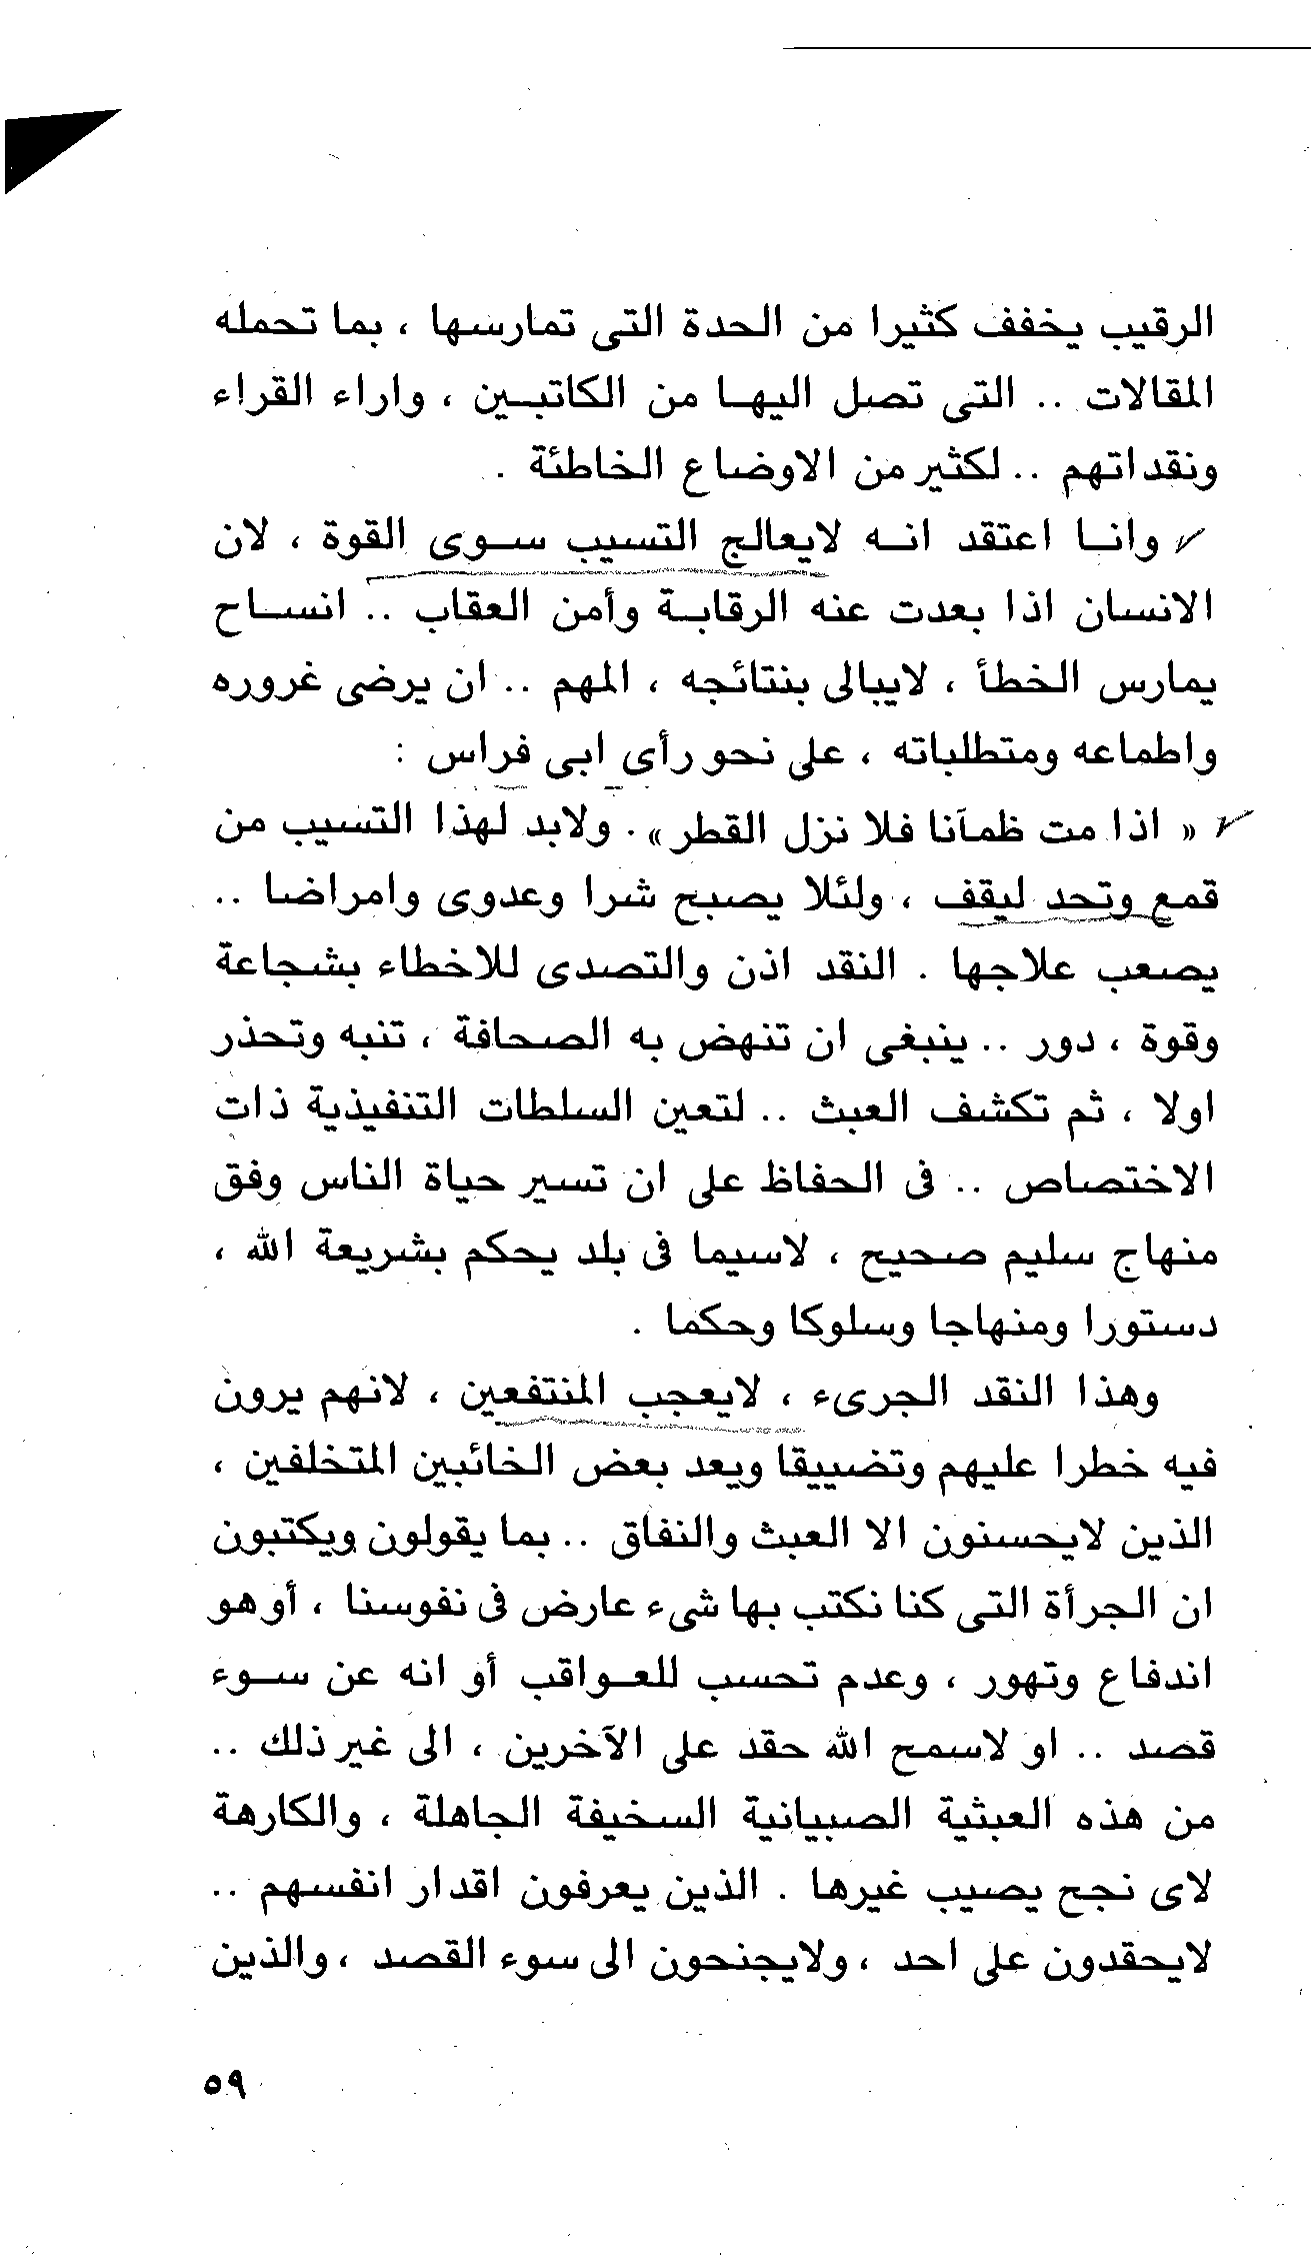 الرقيب يخفف كثيرا من الحدة التى تمارسها ، بما تحمله
المقالات .. التى تصل اليها من الكاتبين ، واراء القراء
ونقداتهم .. لكثير من الاوضاع الخاطئة .
وانا اعتقد انه لايعالج التسيب سوى القوة ، لان
الانسان اذا بعدت عنه الرقابة وأمن العقاب .. انساح
يمارس الخطأ ، لايبالى بنتائجه ، المهم .. ان يرضى غروره
واطماعه ومتطلباته ، على نحو رأى ابى فراس :
« اذا مت ظمآنا فلا نزل القطر » . ولابد لهذا التسيب من
قمع وتحد ليقف ، ولئلا يصبح شرا وعدوى وامراضا ..
يصعب علاجها . النقد اذن والتصدى للاخطاء بشجاعة
وقوة ، دور .. ينبغى ان تنهض به الصحافة ، تنبه وتحذر
اولا ، ثم تكشف العبث .. لتعين السلطات التنفيذية ذات
الاختصاص .. فى الحفاظ على ان تسير حياة الناس وفق
منهاج سليم صحيح ، لاسيما فى بلد يحكم بشريعة الله ،
دستورا ومنهاجا وسلوكا وحكما .
وهذا النقد الجرىء ، لايعجب المنتفعين ، لانهم يرون
فيه خطرا عليهم وتضييقا ويعد بعض الخائبين المتخلفين ،
الذين لايحسنون الا العبث والنفاق .. بما يقولون ويكتبون
ان الجرأة التى كنا نكتب بها شىء عارض فى نفوسنا ، أو هو
اندفاع وتهور ، وعدم تحسب للعواقب أو انه عن سوء
قصد .. او لاسمح الله حقد على الآخرين ، الى غير ذلك ..
من هذه العبثية الصبيانية السخيفة الجاهلة ، والكارهة
لاى نجح يصيب غيرها . الذين يعرفون اقدار انفسهم ..
لايحقدون على احد ، ولايجنحون الى سوء القصد ، والذين
٥٩